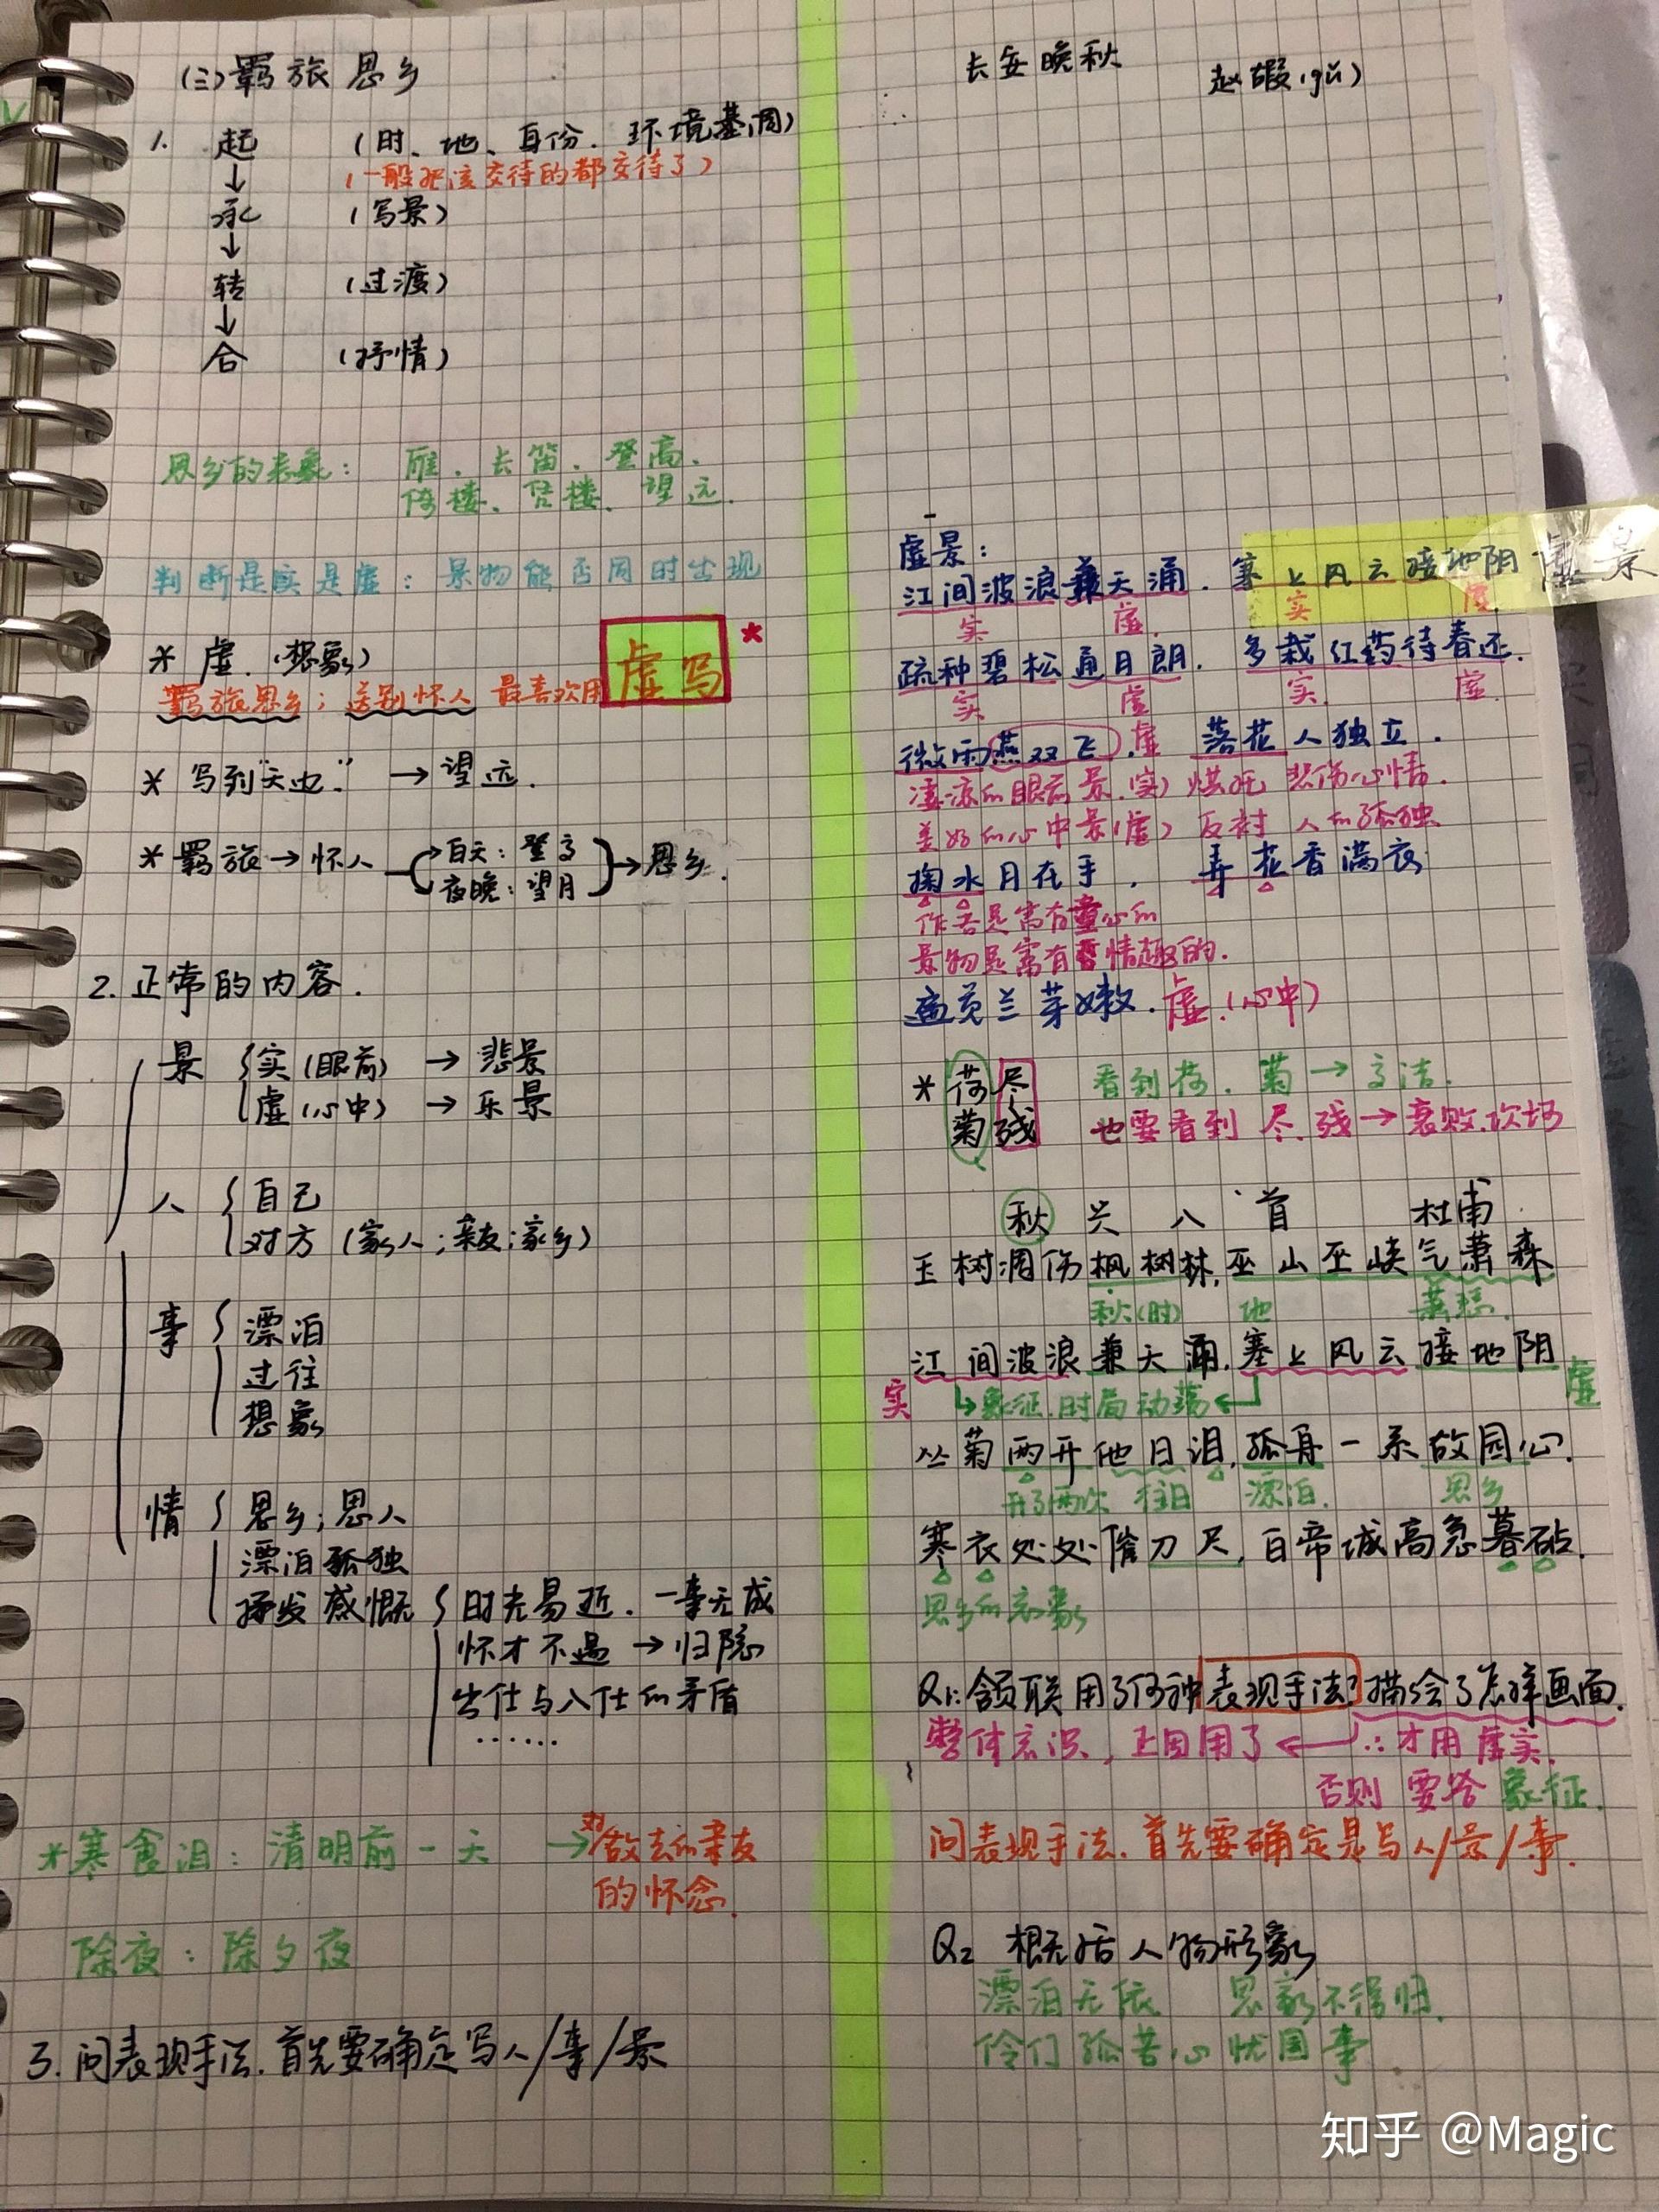 (三)羁旅思乡
1. 起 (时、地、身份、环境基调)
↓ (一般把该交待的都交待了)
承 (写景)
↓
转 (过渡)
↓
合 (抒情)
思乡的意象: 雁、长笛、登高、
倚楼、凭楼、望远.
判断是实是虚: 景物能否同时出现
* 虚.(想象) 虚写 *
羁旅思乡; 送别怀人 最喜欢用
* 写到"天边" → 望远.
* 羁旅→怀人 白天: 登高 →思乡.
夜晚: 望月
2. 正常的内容.
景 实(眼前) → 悲景
虚(心中) → 乐景
人 自己
对方 (家人;亲友;家乡)
事 漂泊
过往
想象
情 思乡; 思人
漂泊孤独
抒发感慨 时光易逝、一事无成
怀才不遇 → 归隐
出仕与入仕的矛盾
……
*寒食泪: 清明前一天 →对故去的亲友
的怀念.
除夜: 除夕夜
3. 问表现手法.首先要确定写人/事/景
长安晚秋 赵嘏(gǔ)
虚景:
江间波浪兼天涌. 塞上风云接地阴 虚景
实 虚. 实 虚.
疏种碧松通月朗. 多栽红药待春还.
实 虚 实. 虚.
微雨燕双飞. 虚 落花人独立.
凄凉的眼前景(实) 烘托 悲伤心情.
美好的心中景(虚) 反衬 人的孤独
掬水月在手, 弄花香满衣
作者是富有童心的
景物是富有情趣的.
兰芽嫩. 虚.(心中)
* 荷尽 看到荷、菊→高洁.
菊残 也要看到 尽.残→衰败.坎坷
秋兴八首 杜甫
玉树凋伤枫树林,巫山巫峡气萧森
秋(时) 地 萧瑟.
江间波浪兼天涌.塞上风云接地阴
实 →象征.时局动荡← 虚
丛菊两开他日泪,孤舟一系故园心.
开了两次 往日 漂泊. 思乡
寒衣处处催刀尺,白帝城高急暮砧.
思乡的意象
Q1:颔联用了何种表现手法?描绘了怎样画面.
整体意识, 正因用了← ∴才用虚实.
否则 要答 象征.
问表现手法.首先要确定是写人/景/事.
Q2 概括人物形象
漂泊无依 思家不得归.
伶仃孤苦 心忧国事
知乎 @Magic